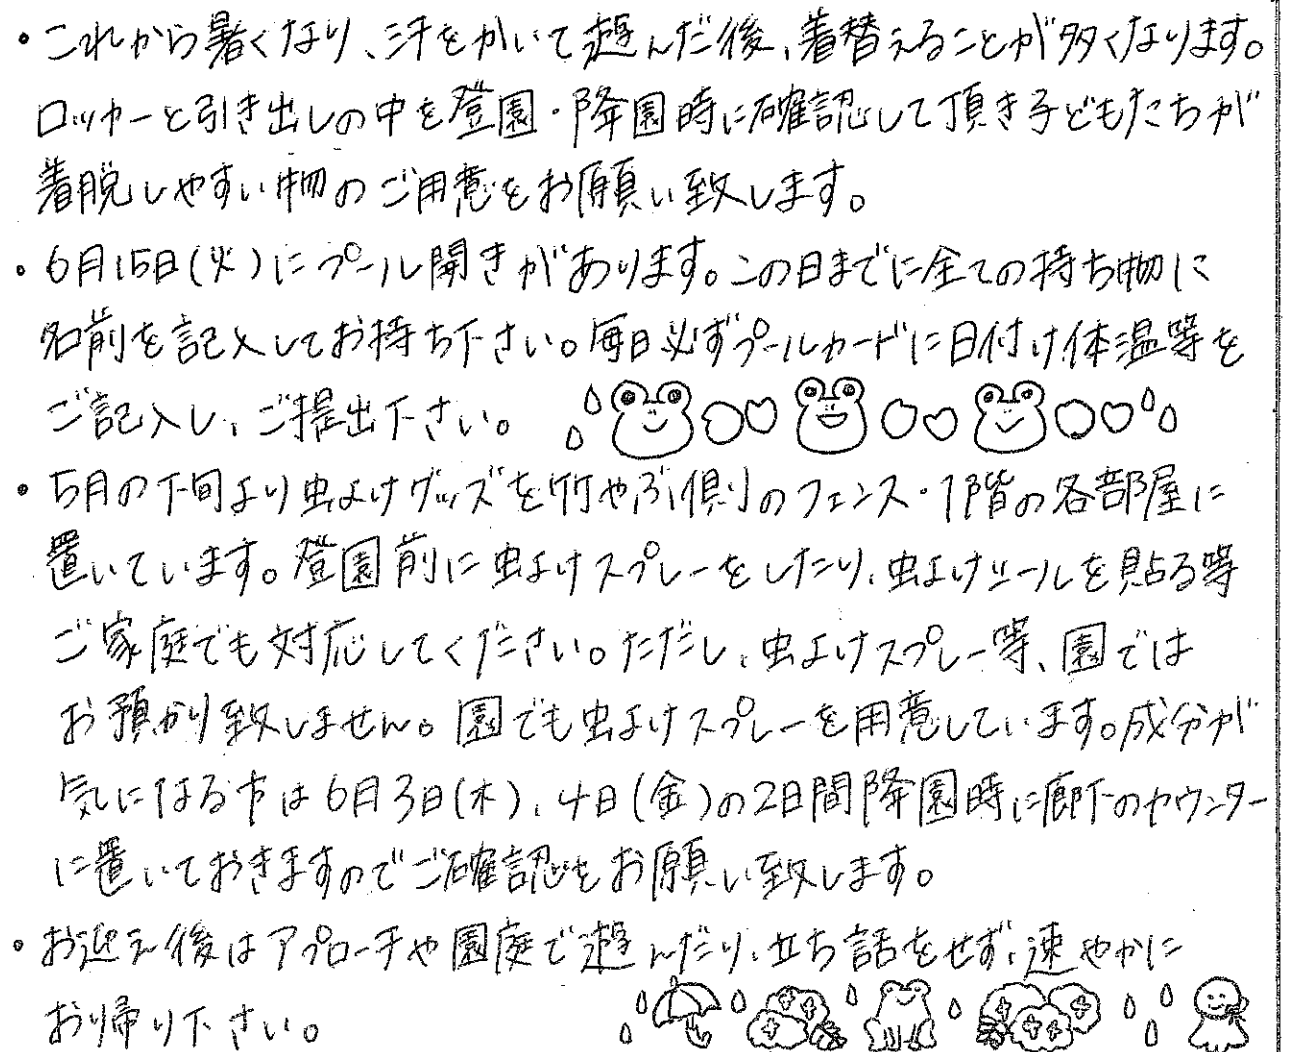 ・これから暑くなり、汗をかいて遊んだ後、着替えることが多くなります。
ロッカーと引き出しの中を登園・降園時に確認して頂き子どもたちが
着脱しやすい物のご用意をお願い致します。
・6月15日(火)にプール開きがあります。この日までに全ての持ち物に
名前を記入してお持ち下さい。毎日必ずプールカードに日付け体温等を
ご記入し、ご提出下さい。
・5月の下旬より虫よけグッズを竹やぶ側のフェンス・1階の各部屋に
置いています。登園前に虫よけスプレーをしたり、虫よけシールを貼る等
ご家庭でも対応してください。ただし、虫よけスプレー等、園では
お預かり致しません。園でも虫よけスプレーを用意しています。成分が
気になる方は6月3日(木)、4日(金)の2日間降園時に廊下のカウンター
に置いておきますのでご確認をお願い致します。
・お迎え後はアプローチや園庭で遊んだり、立ち話をせず、速やかに
お帰り下さい。